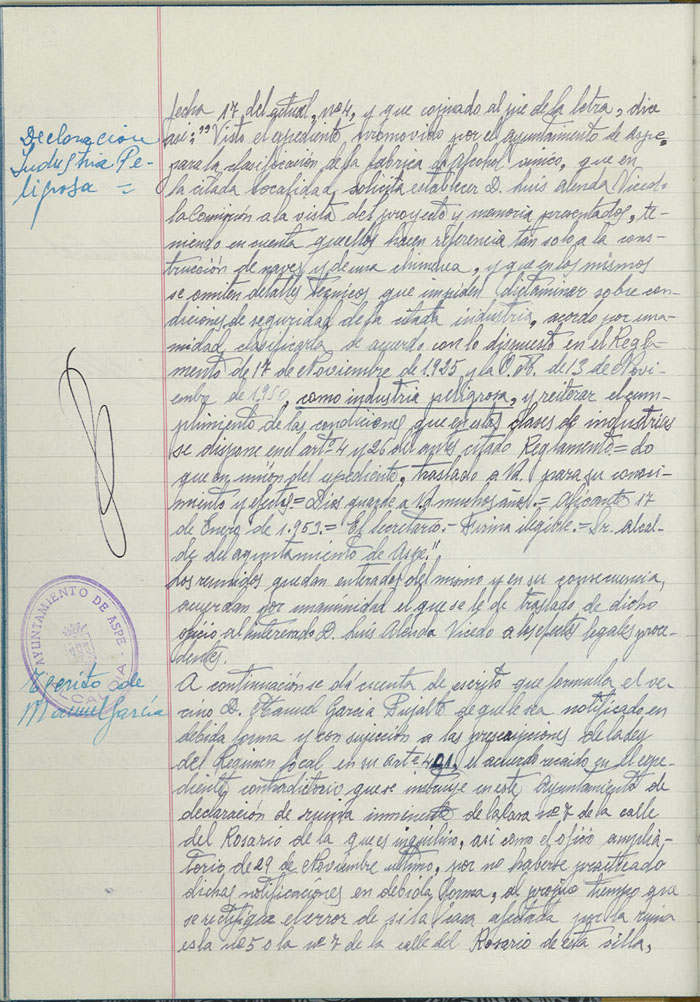 Declaración
Industria Pe-
ligrosa =
fecha 17 del actual, nº 4, y que copiado al pie de la letra, dice
así: "Visto el expediente promovido por el ayuntamiento de Aspe,
para la clasificación de la fabrica de alcohol vinico, que en
la citada localidad, solicita establecer D. Luis Alenda Vicedo
la Comisión a la vista del proyecto y memoria presentados, te-
niendo en cuenta que ellos hacen referencia tan solo a la cons-
trucción de naves y de una chimenea, y que en los mismos
se omiten detalles tecnicos que impiden dictaminar sobre con-
diciones de seguridad de la citada industria, acordo por una-
midad, clasificarla de acuerdo con lo dispuesto en el Regla-
mento de 17 de Noviembre de 1.925 y la O. M. de 13 de Novi-
embre de 1.950, como industria peligrosa, y reiterar el cum-
plimiento de las condiciones que en estas clases de industrias
se dispone en el artº 4 y 26 del antes citado Reglamento. = Lo
que en unión del expediente, traslado a Vd. para su conoci-
miento y efectos = Dios guarde a Vd. muchos años. = Alicante 17
de Enero de 1.953. = El secretario. - Firma ilegible. = Sr. Alcal-
de del ayuntamiento de Aspe."
Los reunidos quedan enterados del mismo y en su consecuencia,
acuerdan por unanimidad el que se le dé traslado de dicho
oficio al interesado D. Luis Alenda Vicedo a los efectos legales proce-
dentes.
AYUNTAMIENTO DE ASPE
Escrito de
Manuel García
A continuación se dá cuenta de escrito que formula el ve-
cino D. Manuel García Pujalte de que le sea notificado en
debida forma y con sujeción a las prescripciones de la Ley
del Regimen Local en su artº 401, el acuerdo recaido en el expe-
diente contradictorio que se instruye en este Ayuntamiento de
declaración de ruina inminente de la casa nº 7 de la calle
del Rosario de la que es inquilino, así como el oficio amplia-
torio de 29 de Noviembre ultimo, por no haberse practicado
dichas notificaciones en debida forma, al propio tiempo que
se rectifique el error de si la casa afectada por la ruina
es la nº 5 o la nº 7 de la calle del Rosario de esta villa,